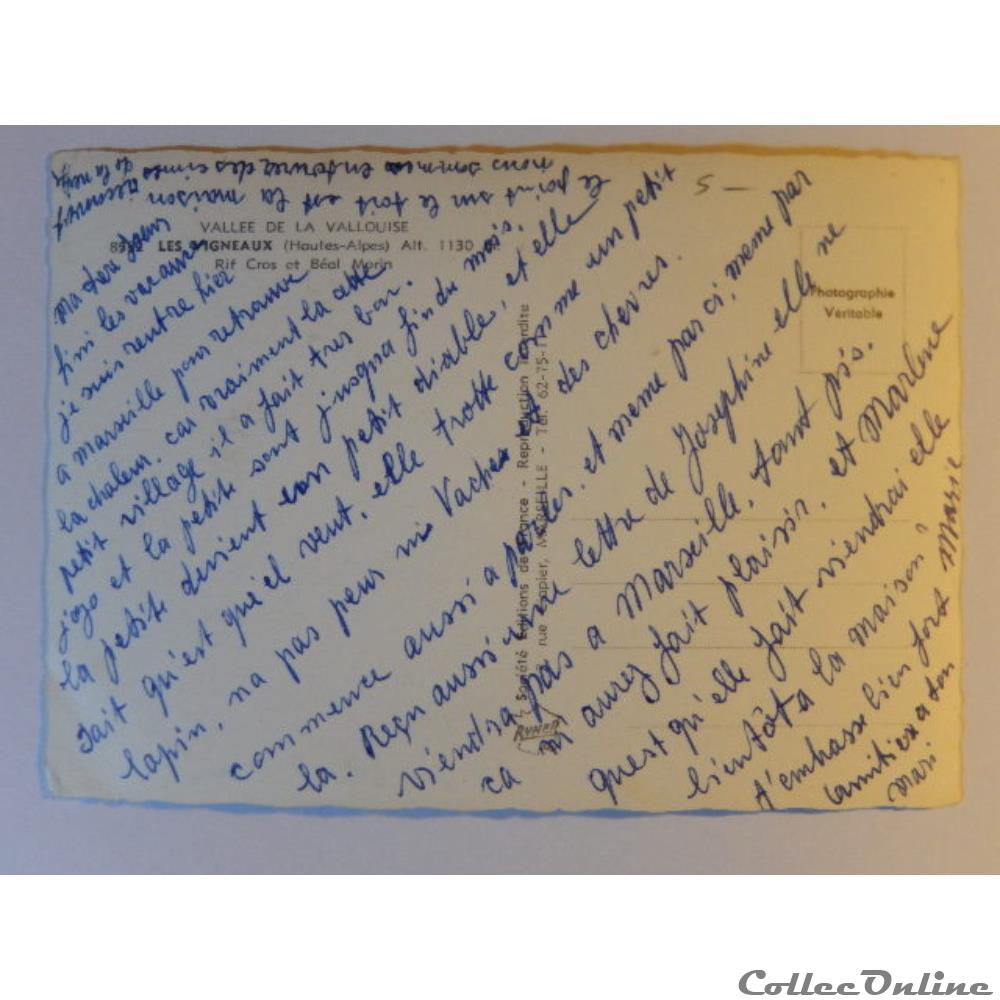 le point sur le toit est la maison
nous sommes entouree des cimes
de la neige
VALLEE DE LA VALLOUISE
LES VIGNEAUX (Hautes-Alpes) Alt. 1130 m.
Rif Cros et Béal Morin
Photographie
Véritable
5 -
Société Editions de France - Reproduction interdite
rue Papier, MARSEILLE - Tél. 62-75-
RYNER
ma soeur
fini les vacances
je suis rentre hier
a marseille pour retrouver
la chaleur. car vraiment la cette
petit village il a fait tres bon.
jojo et la petite sont jusqua fin du mois.
la petite devient un petit diable, et elle
fait qu'est qu'el veut, elle trotte comme un petit
lapin, na pas peur ni Vaches et des chevres.
commence aussi a parler. et meme par ci, meme par
la. Reçu aussi une lettre de Josephine elle ne
viendra pas a Marseille, tant pis.
ca m aurez fait plaisir. et Marlene
quest qu'elle fait viendrai elle
bientôt a la maison?
t'embrasse bien fort Marie
amitiex a ton
mari
CollecOnline